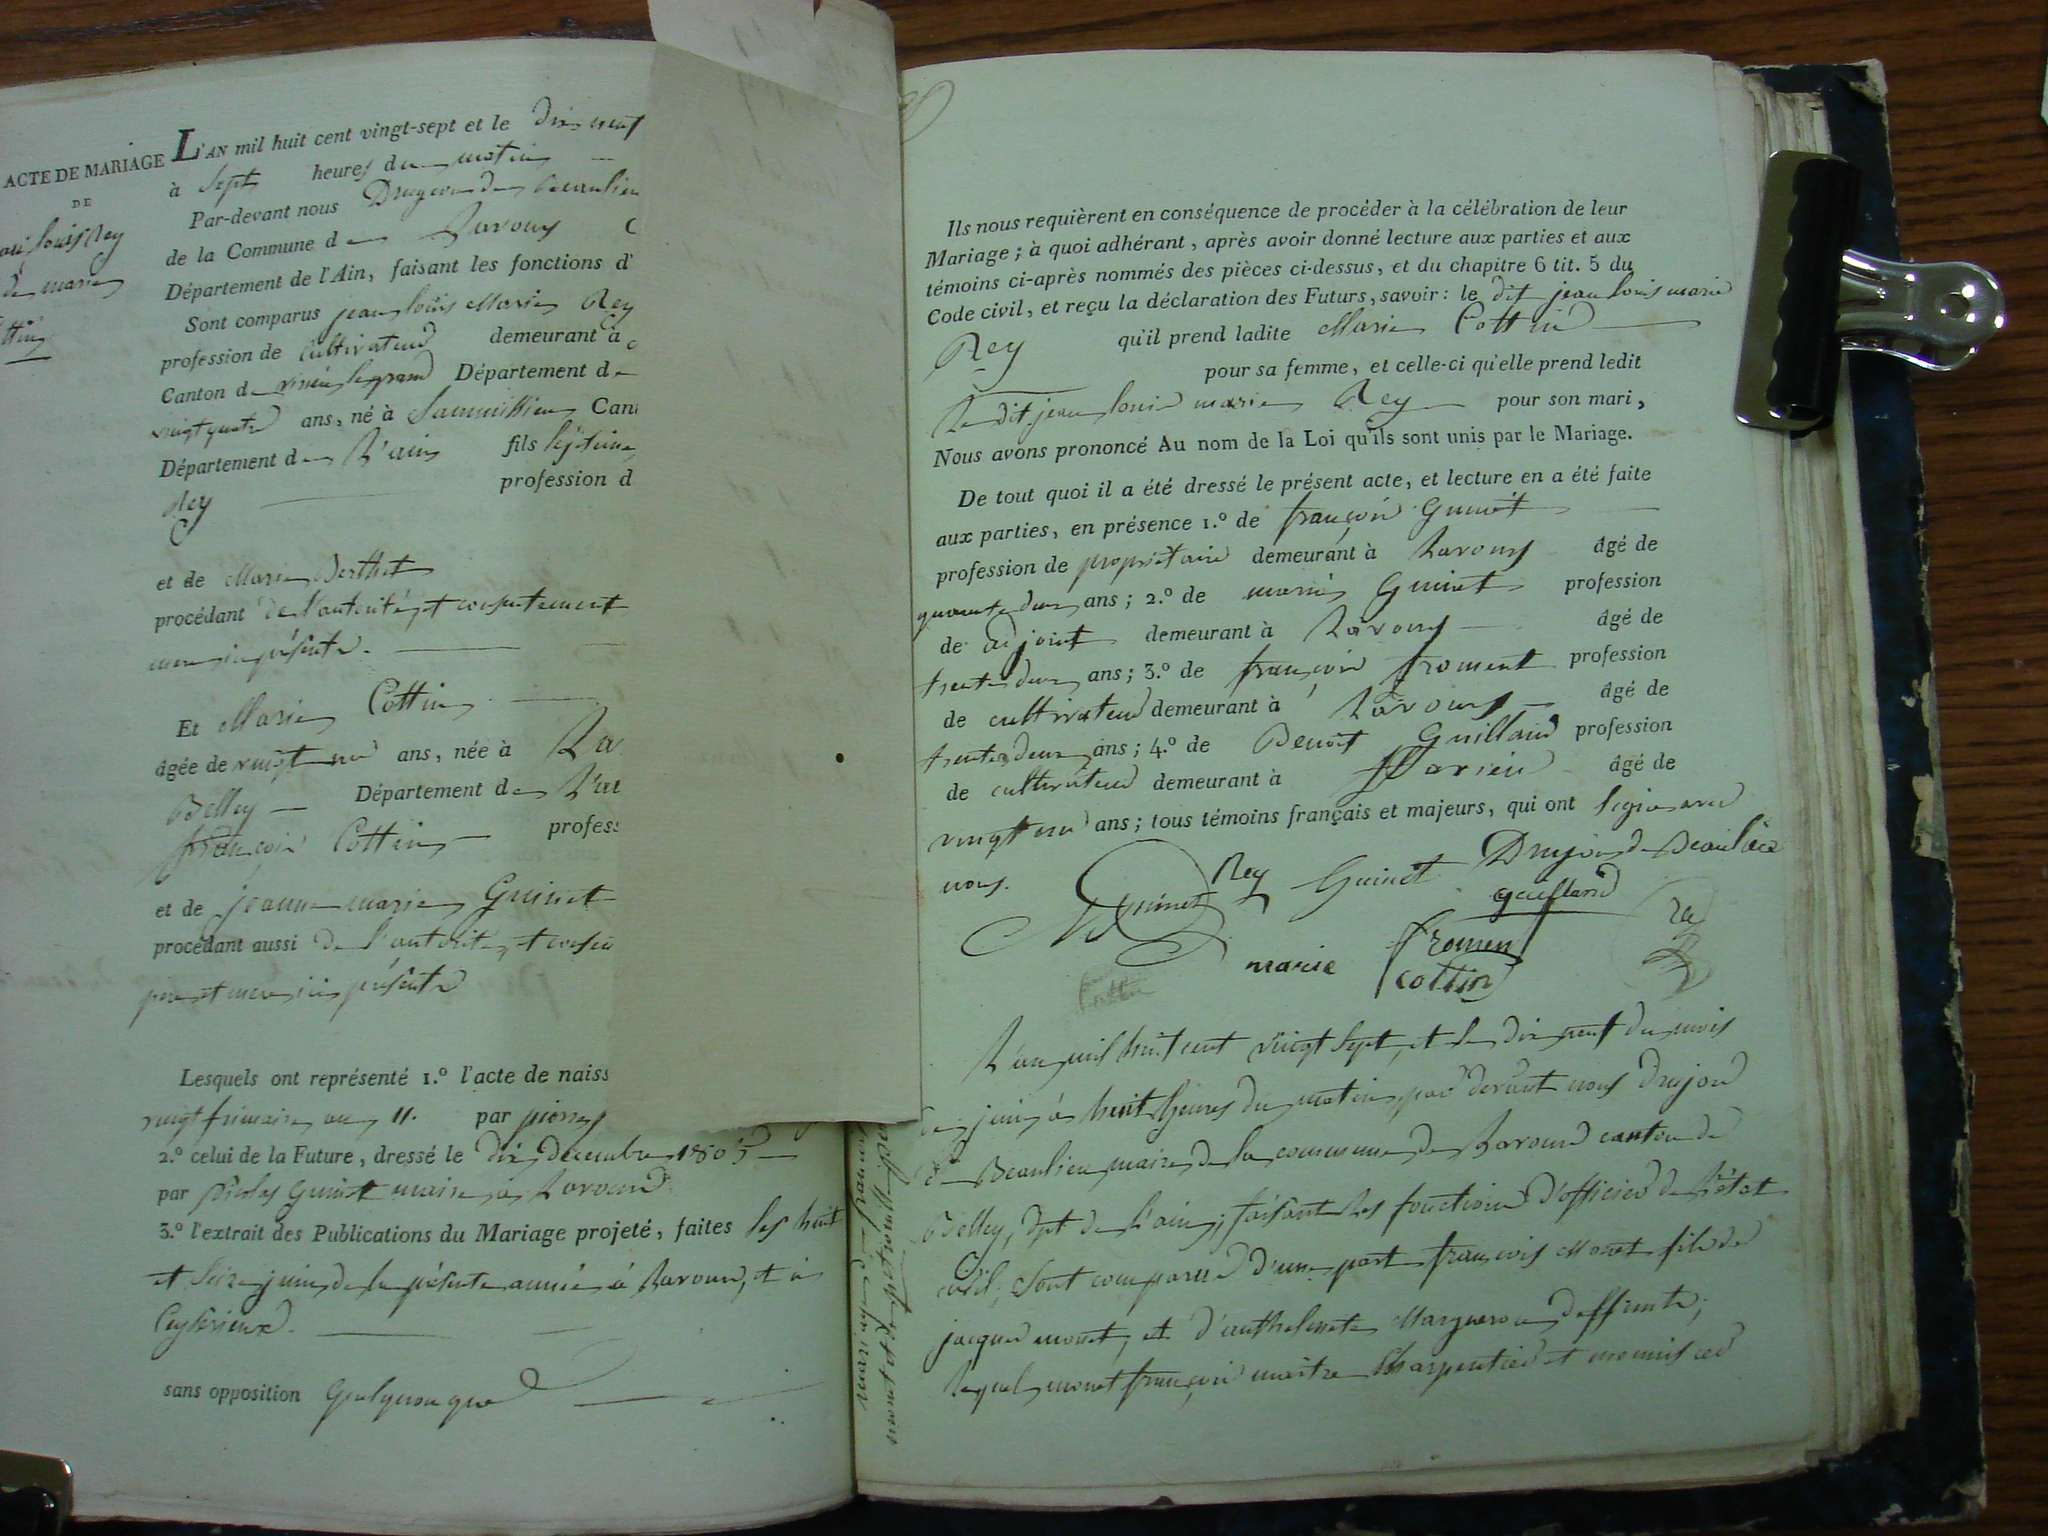 ACTE DE MARIAGE
DE
louis Rey
de marie
L'AN mil huit cent vingt-sept et le dix neuf
à sept heures du matin
Par-devant nous Drujon de Beaulieu
de la Commune de Lavours
Département de l'Ain, faisant les fonctions d'
Sont comparus jean louis Marie Rey
profession de cultivateur demeurant à
Canton de virieu le grand Département de
vingt quatre ans, né à Can
Département de l'ain fils légitime
Rey profession d
et de Marie Berthet
procédant de l'autorité et consentement
mere ici présente.
Et Marie Cottin
âgée de vingt un ans, née à La
Belley Département de L'ai
françois Cottin profess
et de jeanne marie Guinet
procédant aussi de l'autorité et conse
pere et mere ici présents
Lesquels ont représenté 1.° l'acte de naiss
vingt frimaire an 11. par pierre
2.° celui de la Future, dressé le dix decembre 1805
par Nicolas Guinet maire à Lavours
3.° l'extrait des Publications du Mariage projeté, faites les huit
et seize juin de la présente année à Lavours, et à
Ceyserieux.
sans opposition quelquonque
Ils nous requièrent en conséquence de procéder à la célébration de leur
Mariage ; à quoi adhérant, après avoir donné lecture aux parties et aux
témoins ci-après nommés des pièces ci-dessus, et du chapitre 6 tit. 5 du
Code civil, et reçu la déclaration des Futurs, savoir : le dit jean louis marie
Rey qu'il prend ladite Marie Cottin
pour sa femme, et celle-ci qu'elle prend ledit
Le dit jean louis marie Rey pour son mari,
Nous avons prononcé Au nom de la Loi qu'ils sont unis par le Mariage.
De tout quoi il a été dressé le présent acte, et lecture en a été faite
aux parties, en présence 1.° de françois Guinet
profession de propriétaire demeurant à Lavours âgé de
quarante deux ans ; 2.° de marie Guinet profession
de adjoint demeurant à Lavours âgé de
trente deux ans ; 3.° de françois froment profession
de cultivateur demeurant à Lavours âgé de
trente deux ans ; 4.° de Benoit Guilland profession
de cultivateur demeurant à flaxieu âgé de
vingt un ans ; tous témoins français et majeurs, qui ont signé avec
nous. Guinet Rey Guinet Drujon de Beaulieu
guilland
fromen
marie cottin
L'an mil huit cent vingt sept, et le dix neuf du mois
de juin à huit heures du matin, par devant nous Drujon
de Beaulieu maire de la commune de Lavours canton de
Belley, dpt de l'ain, faisant les fonctions d'officier de l'état
civil; sont comparus d'une part françois Monet fils de
jacques monet, et d'anthelmette Marqueron deffunte;
lequel monet françois maitre charpentier et menuisier
mariage de françois
monet et de petronille